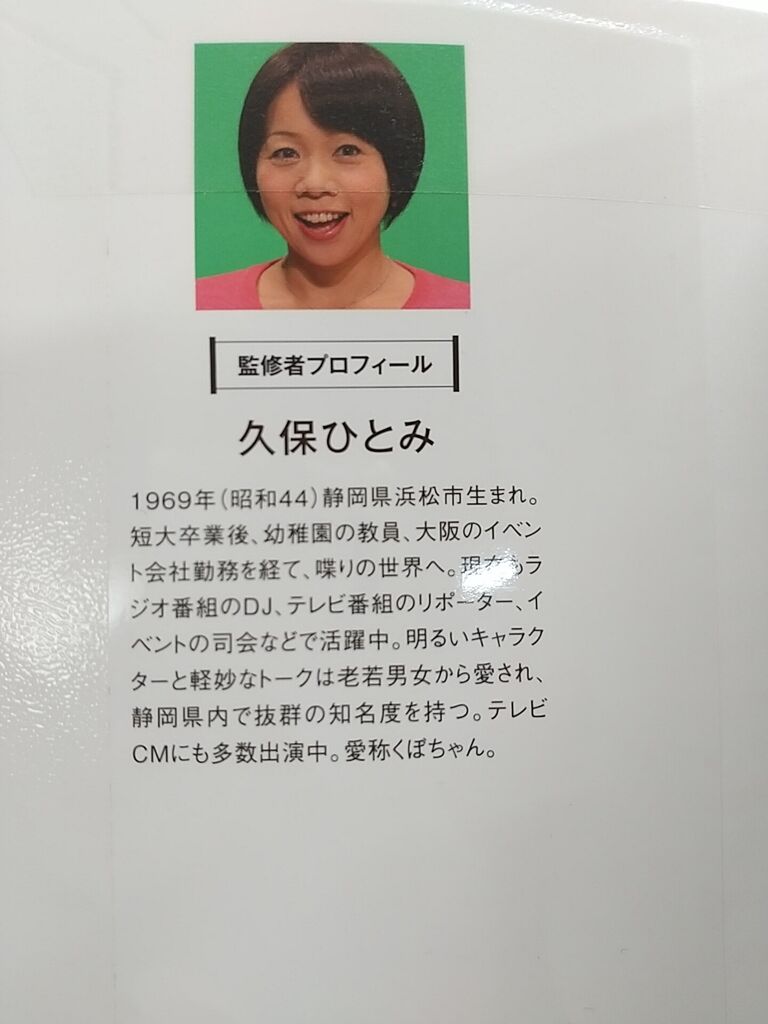 監修者プロフィール
久保ひとみ
1969年(昭和44)静岡県浜松市生まれ。
短大卒業後、幼稚園の教員、大阪のイベン
ト会社勤務を経て、喋りの世界へ。現在もラ
ジオ番組のDJ、テレビ番組のリポーター、イ
ベントの司会などで活躍中。明るいキャラク
ターと軽妙なトークは老若男女から愛され、
静岡県内で抜群の知名度を持つ。テレビ
CMにも多数出演中。愛称くぼちゃん。